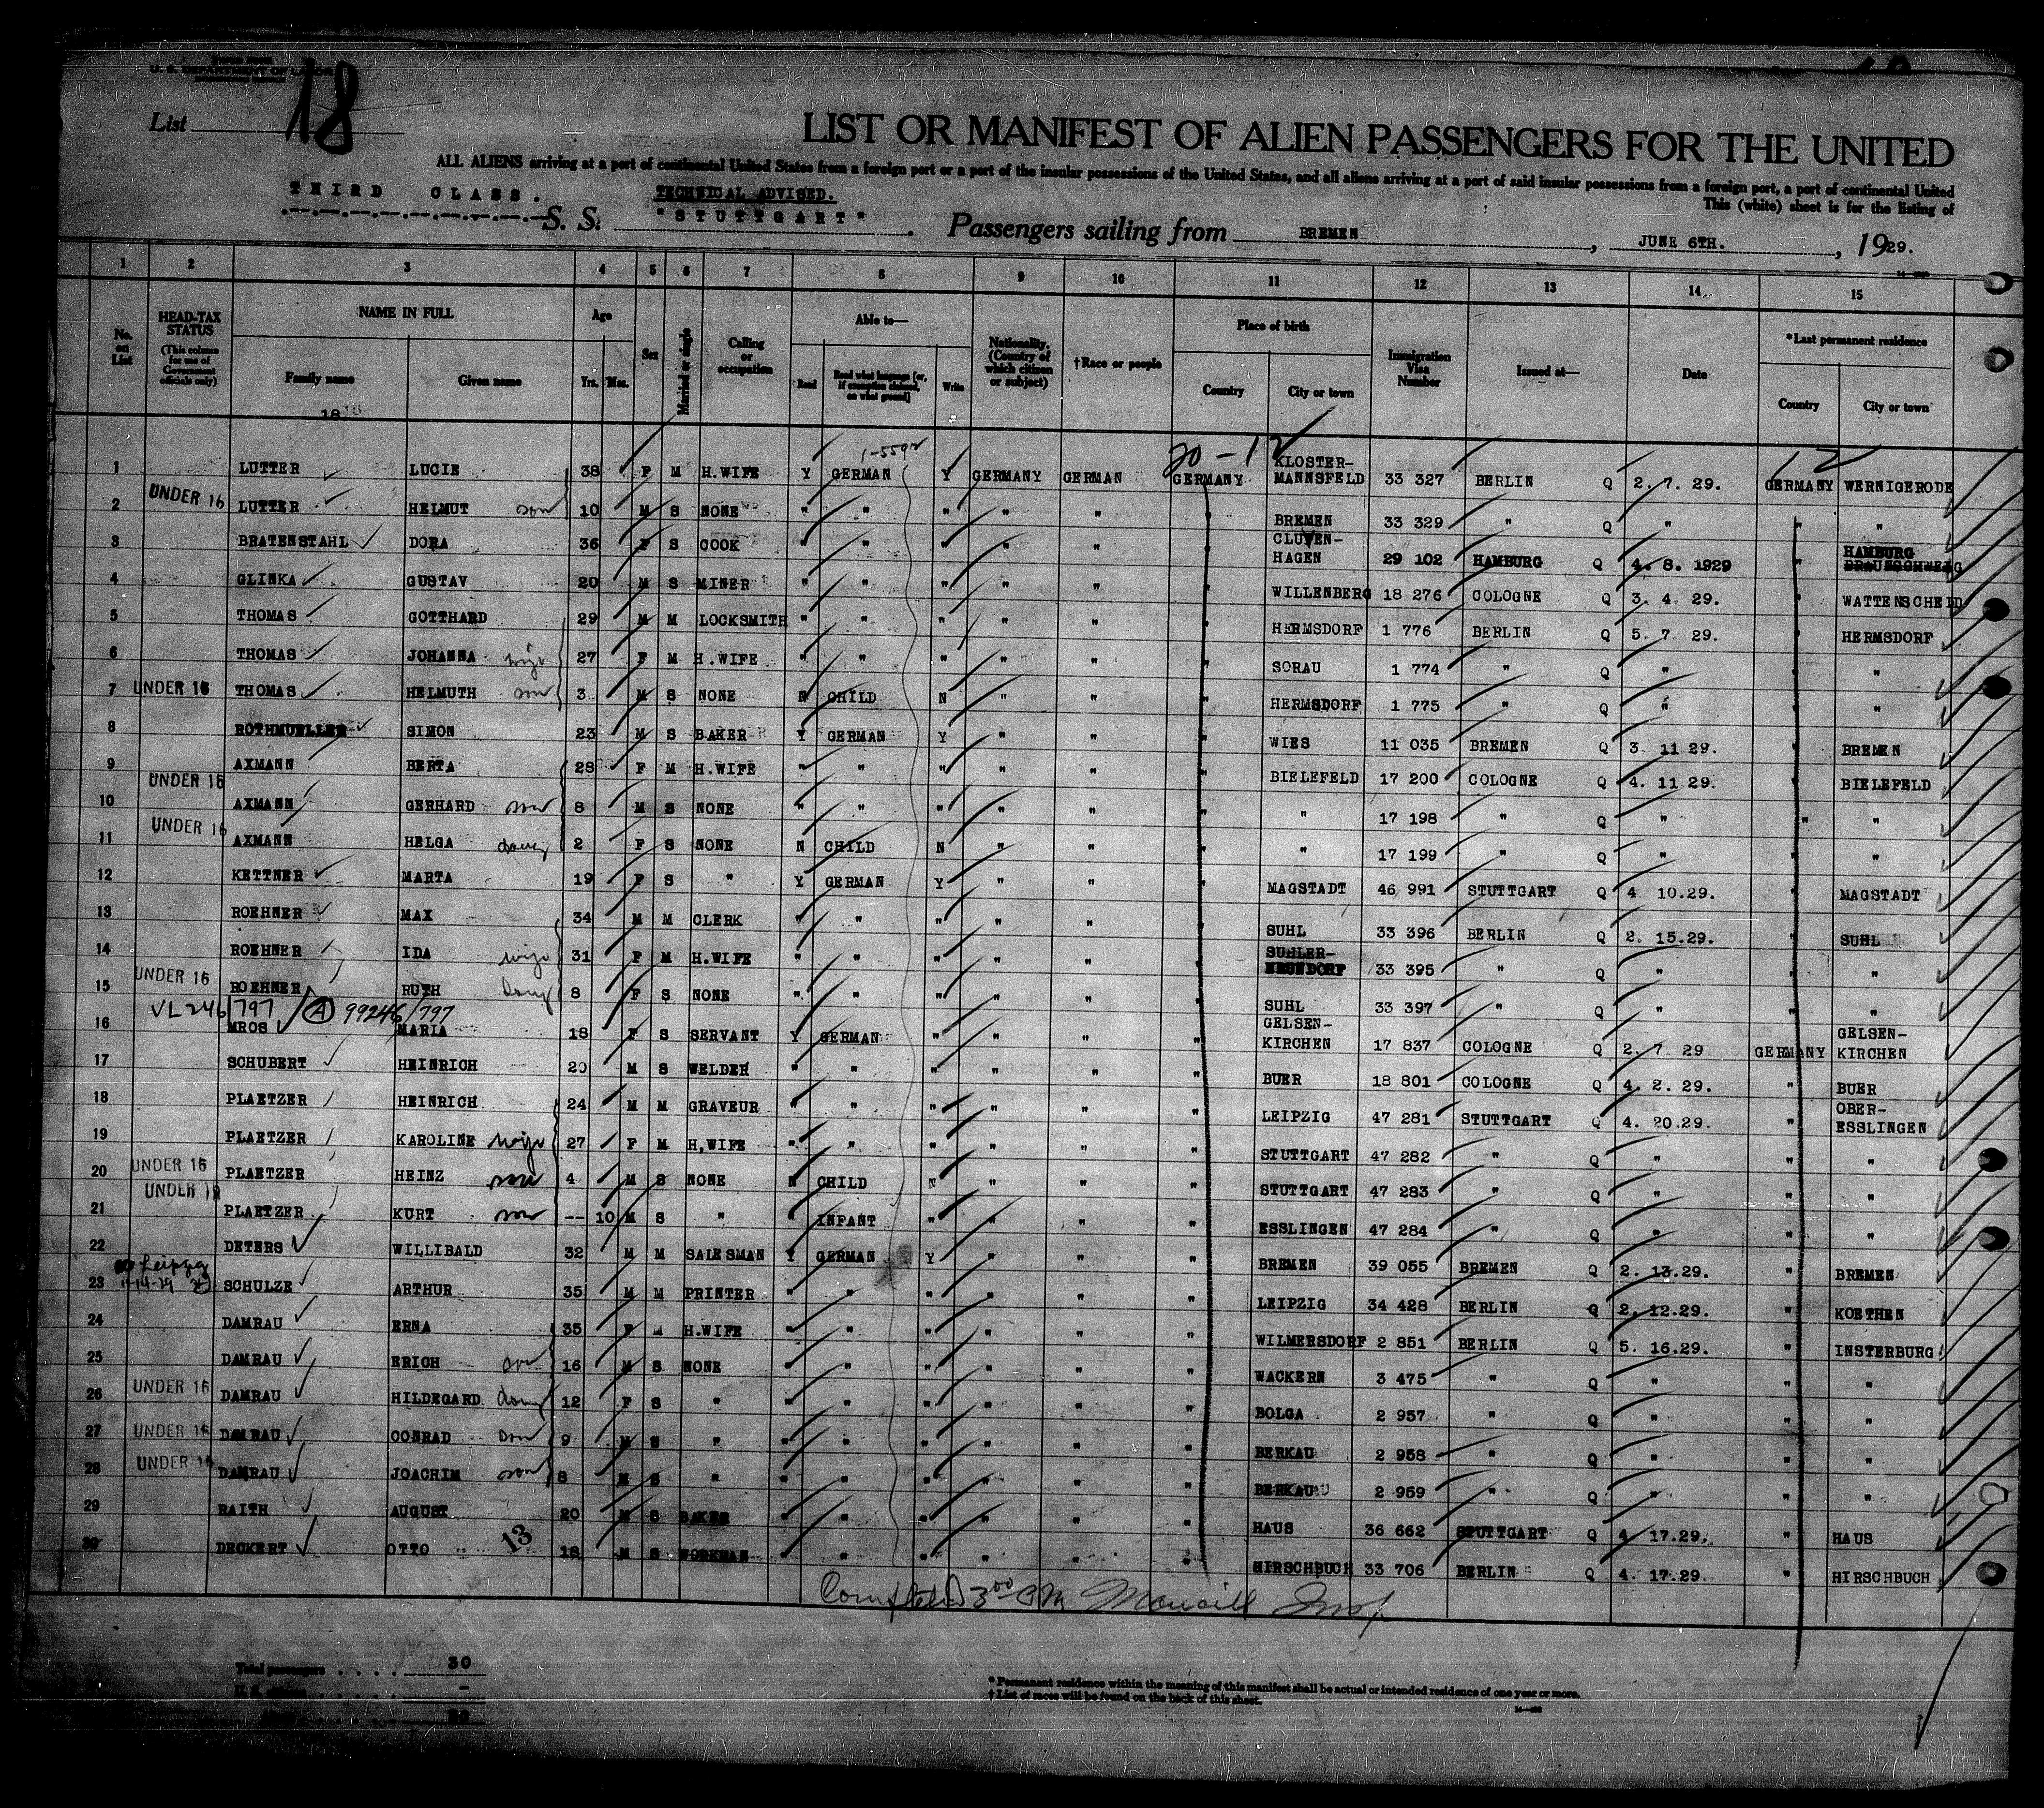 U. S. DEPARTMENT OF LABOR
List 18
LIST OR MANIFEST OF ALIEN PASSENGERS FOR THE UNITED
ALL ALIENS arriving at a port of continental United States from a foreign port or a port of the insular possessions of the United States, and all aliens arriving at a port of said insular possessions from a foreign port, a port of continental United
This (white) sheet is for the listing of
THIRD CLASS. TECHNICAL ADVISED.
S. S. "STUTTGART". Passengers sailing from BREMEN, JUNE 6TH., 1929.
1 2 3 4 5 6 7 8 9 10 11 12 13 14 15
No. on List
HEAD-TAX STATUS (This column for use of Government officials only)
NAME IN FULL Family name Given name
Age Yrs. Mos.
Sex
Married or single
Calling or occupation
Able to— Read Read what language [or, if exemption claimed, on what ground] Write
Nationality. (Country of which citizen or subject)
†Race or people
Place of birth Country City or town
Immigration Visa Number
Issued at—
Date
*Last permanent residence Country City or town
1-5592
20-12 12
1 LUTTER LUCIE 38 F M H.WIFE Y GERMAN Y GERMANY GERMAN GERMANY KLOSTER-MANNSFELD 33 327 BERLIN Q 2. 7. 29. GERMANY WERNIGERODE
2 UNDER 16 LUTTER HELMUT son 10 M S NONE " " " " " " BREMEN 33 329 " Q " " "
3 BRATENSTAHL DORA 36 F S COOK " " " " " " CLUVEN-HAGEN 29 102 HAMBURG Q 4. 8. 1929 " HAMBURG BRAUNSCHWEIG
4 GLINKA GUSTAV 20 M S MINER " " " " " " WILLENBERG 18 276 COLOGNE Q 3. 4. 29. " WATTENSCHEID
5 THOMAS GOTTHARD 29 M M LOCKSMITH " " " " " " HERMSDORF 1 776 BERLIN Q 5. 7 29. " HERMSDORF
6 THOMAS JOHANNA wife 27 F M H.WIFE " " " " " " SORAU 1 774 " Q " " "
7 UNDER 16 THOMAS HELMUTH son 3 M S NONE N CHILD N " " " HERMSDORF 1 775 " Q " " "
8 ROTHMUELLER SIMON 23 M S BAKER Y GERMAN Y " " " WIES 11 035 BREMEN Q 3. 11 29. " BREMEN
9 AXMANN BERTA 28 F M H.WIFE " " " " " " BIELEFELD 17 200 COLOGNE Q 4. 11 29. " BIELEFELD
10 UNDER 16 AXMANN GERHARD son 8 M S NONE " " " " " " " 17 198 " Q " " "
11 UNDER 16 AXMANN HELGA daug 2 F S NONE N CHILD N " " " " 17 199 " Q " " "
12 KETTNER MARTA 19 F S " Y GERMAN Y " " " MAGSTADT 46 991 STUTTGART Q 4 10.29. " MAGSTADT
13 ROEHNER MAX 34 M M CLERK " " " " " " SUHL 33 396 BERLIN Q 2. 15.29. " SUHL
14 ROEHNER IDA wife 31 F M H.WIFE " " " " " " SUHLER-NEUNDORF 33 395 " Q " " "
15 UNDER 16 ROEHNER RUTH daug 8 F S NONE " " " " " " SUHL 33 397 " Q " " "
VL 246/797 (A) 99246/797
16 MROS MARIA 18 F S SERVANT Y GERMAN " " " " GELSEN-KIRCHEN 17 837 COLOGNE Q 2. 7. 29 GERMANY GELSEN-KIRCHEN
17 SCHUBERT HEINRICH 20 M S WELDER " " " " " " BUER 18 801 COLOGNE Q 4. 2. 29. " BUER
18 PLAETZER HEINRICH 24 M M GRAVEUR " " " " " " LEIPZIG 47 281 STUTTGART Q 4. 20.29. " OBER-ESSLINGEN
19 PLAETZER KAROLINE wife 27 F M H,WIFE " " " " " " STUTTGART 47 282 " Q " " "
20 UNDER 16 PLAETZER HEINZ son 4 M S NONE N CHILD N " " " STUTTGART 47 283 " Q " " "
21 UNDER 16 PLAETZER KURT son -- 10 M S " " INFANT " " " " ESSLINGEN 47 284 " Q " " "
22 DETERS WILLIBALD 32 M M SALESMAN Y GERMAN Y " " " BREMEN 39 055 BREMEN Q 2. 13.29. " BREMEN
Leipzig 11-14-29
23 SCHULZE ARTHUR 35 M M PRINTER " " " " " " LEIPZIG 34 428 BERLIN Q 2. 12.29. " KOETHEN
24 DAMRAU ERNA 35 F M H.WIFE " " " " " " WILMERSDORF 2 851 BERLIN Q 5. 16.29. " INSTERBURG
25 DAMRAU ERICH son 16 M S NONE " " " " " " WACKERN 3 475 " Q " " "
26 UNDER 16 DAMRAU HILDEGARD daug 12 F S " " " " " " " BOLGA 2 957 " Q " " "
27 UNDER 16 DAMRAU CONRAD son 9 M S " " " " " " " BERKAU 2 958 " Q " " "
28 UNDER 16 DAMRAU JOACHIM son 8 M S " " " " " " " BERKAU 2 959 " Q " " "
29 RAITH AUGUST 20 M S BAKER " " " " " " HAUS 36 662 STUTTGART Q 4. 17.29. " HAUS
30 DECKERT OTTO 13 18 M S WORKMAN " " " " " " HIRSCHBUCH 33 706 BERLIN Q 4. 17.29. " HIRSCHBUCH
Completed 3 00 PM Insp.
Total passengers 30
U. S. citizens -
30
* Permanent residence within the meaning of this manifest shall be actual or intended residence of one year or more.
† List of races will be found on the back of this sheet.